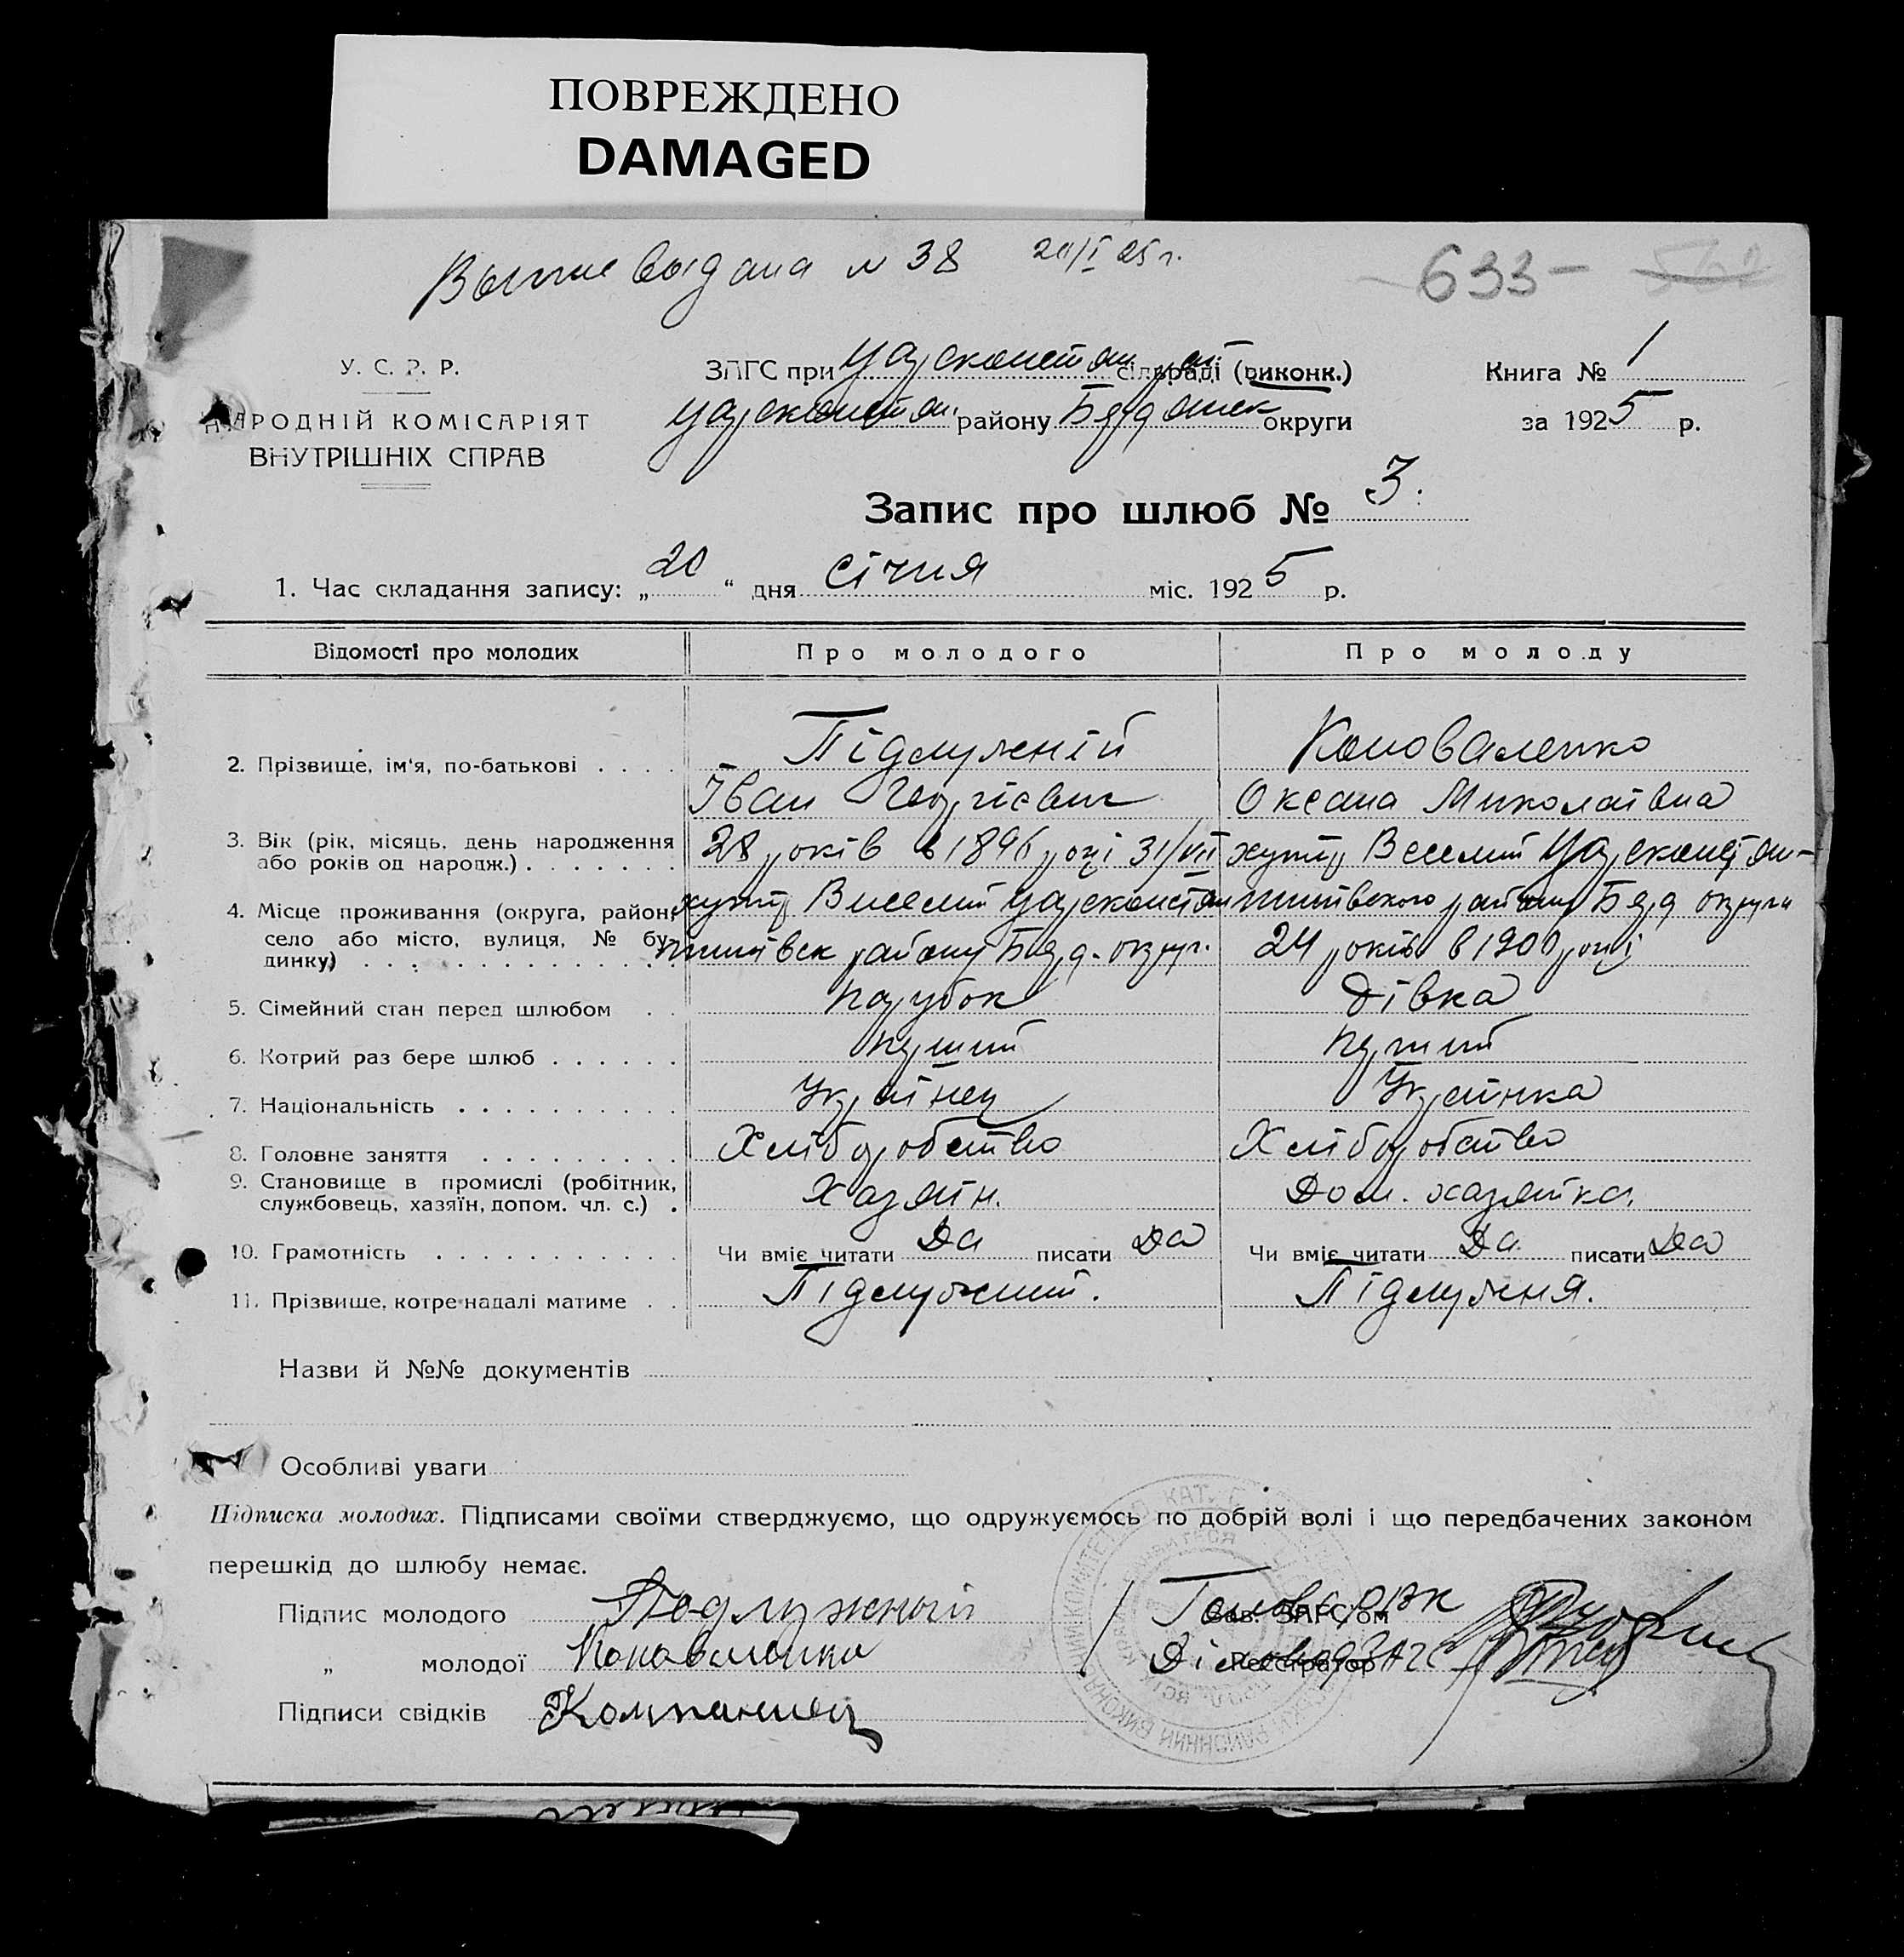 ПОВРЕЖДЕНО
DAMAGED
выдана № 38 20/I 25 г.
633
У. С. Р. Р.
НАРОДНІЙ КОМІСАРІЯТ
ВНУТРІШНІХ СПРАВ
ЗАГС при Царсконстан. сільраді (виконк.)
Царсконстан. району Бердянск округи
Книга № 1
за 1925 р.
Запис про шлюб № 3.
1. Час складання запису: „20“ дня січня міс. 1925 р.
Відомості про молодих Про молодого Про молоду
2. Прізвище, ім'я, по-батькові . . . . Підлужній Коноваленко
Іван Георгієвич Оксана Миколаївна
3. Вік (рік, місяць, день народження 28 років в 1896 році 31/VII хутір Веселий Царсконстан-
або років од народж.) . . . . . . .
4. Місце проживання (округа, район, хутір Веселий Царсконстан тинівского району Берд округи
село або місто, вулиця, № бу-
динку) . . . . . . . . . . . . . тинівск району Берд. округ. 24 років в 1900 році
5. Сімейний стан перед шлюбом . . парубок дівка
6. Котрий раз бере шлюб . . . . . . перший перший
7. Національність . . . . . . . . . . Українец Українка
8. Головне заняття . . . . . . . . . Хліборобство Хліборобство
9. Становище в промислі (робітник,
службовець, хазяїн, допом. чл. с.) . Хазяїн. Дом. хазяйка.
10. Грамотність . . . . . . . . . . . Чи вміє читати Да писати Да Чи вміє читати Да писати Да
11. Прізвище, котре надалі матиме . . Підлужний. Підлужня.
Назви й №№ документів
Особливі уваги
Підписка молодих. Підписами своїми стверджуємо, що одружуємось по добрій волі і що передбачених законом
перешкід до шлюбу немає.
Підпис молодого Подлужный Зав. ЗАГС'ом Голова РВК
„ молодої Конаваленко Реєстратор Діловод ЗАГС
Підписи свідків Компаниец